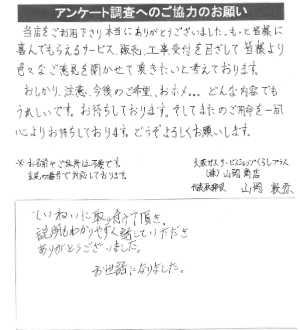 アンケート調査へのご協力のお願い
当店をご利用下さり本当にありがとうございました。もっと皆様に
喜んでもらえるサービス、販売、工事受付を目ざして皆様より
色々なご意見を聞かせて頂きたいと考えております。
おしかり、注意、今後のご希望、おホメ... どんな内容でも
うれしいです。お待ちしております。そしてまたのご用命を一同
心よりお待ちしております。どうぞよろしくお願いします。
※お名前やご住所は不要です。
大阪ガスサービスショップくらしプラス
(株)山岡商店
代表取締役 山岡
ていねいに取り付けて頂き、
説明もわかりやすく話していただき
ありがとうございました。
お世話になりました。